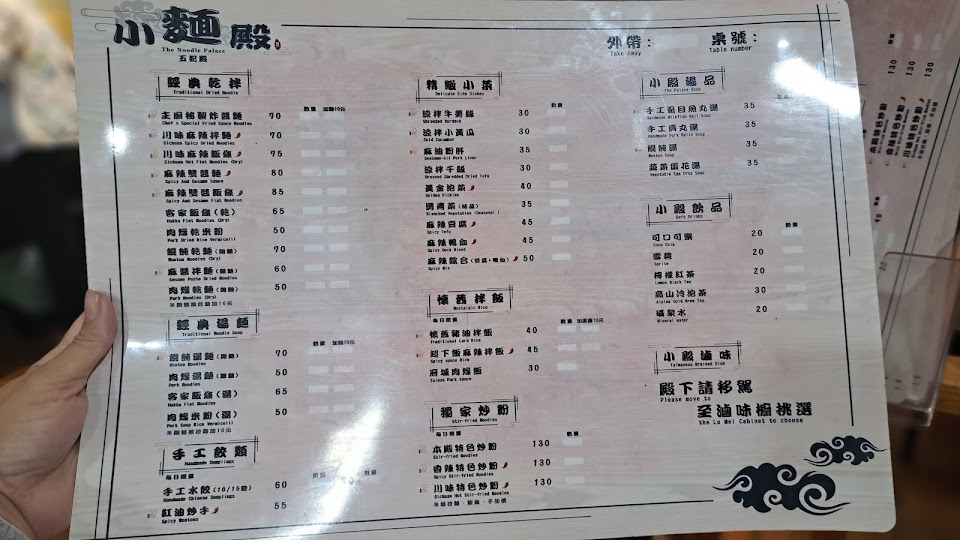 小麵殿
The Noodle Palace
五妃殿
外帶：
Take Away
桌號：
Table number
經典乾拌
Traditional Dried Noodle
數量 加麵10元
主廚秘製炸醬麵 70
Chef's Special Fried Sauce Noodles
川味麻辣拌麵 70
Sichuan Spicy Dried Noodles
川味麻辣粄條 75
Sichuan Hot Flat Noodles (Dry)
麻辣雙醬麵 80
Spicy And Sesame Sauce
麻辣雙醬粄條 85
Spicy And Sesame Flat Noodles
客家粄條(乾) 65
Hakka Flat Noodles (Dry)
肉燥乾米粉 50
Pork Dried Rice Vermicelli
餛飩乾麵(細麵) 70
Wonton Noodles (Dry)
麻醬拌麵(細麵) 60
Sesame Paste Dried Noodles
肉燥乾麵(細麵) 50
Pork Noodles (Dry)
經典湯麵
Traditional Noodle Soup
數量 加麵10元
餛飩湯麵(細麵) 70
Wonton Noodles
肉燥湯麵(細麵) 50
Pork Noodles
客家粄條(湯) 65
Hakka Flat Noodles
肉燥米粉(湯) 50
Pork Soup Rice Vermicelli
手工餃類
Handmade Dumplings
每日限量
手工水餃(10/15顆) 60
Handmade Chinese Dumplings
紅油炒手 55
Spicy Wontons
精緻小菜
Delicate Side Dishes
數量
涼拌牛蒡絲 30
Shredded Burdock
涼拌小黃瓜 30
Cold Cucumber
麻油粉肝 35
Sesame-oil Pork Liver
涼拌干絲 30
Dressed Shredded Dried Tofu
黃金泡菜 40
Golden Pickles
燙青菜(時蔬) 35
Blanched Vegetables (Seasonal)
麻辣豆腐 45
Spicy Tofu
麻辣鴨血 45
Spicy Duck Blood
麻辣綜合(豆腐+鴨血) 50
Spicy Mix
懷舊拌飯
Nostalgic Rice
每日限量
數量 加量10元
懷舊豬油拌飯 40
Traditional Lard Rice
超下飯麻辣拌飯 45
Spicy sauce Rice
府城肉燥飯 30
Tainan Pork sauce
獨家炒粉
Stir-fried Noodles
每日限量
數量
本殿特色炒粉 130
Stir-fried Noodles
香辣特色炒粉 130
Spicy Stir-fried Noodles
川味特色炒粉 130
Sichuan Hot Stir-fried Noodles
小殿湯品
The Palace Soup
數量
手工虱目魚丸湯 35
Handmade Milkfish Ball Soup
手工貢丸湯 35
Handmade Pork Balls Soup
餛飩湯 35
Wonton Soup
蔬菜蛋花湯 35
Vegetable Egg Drop Soup
小殿飲品
Soft Drinks
數量
可口可樂 20
Coca Cora
雪碧 20
Sprite
檸檬紅茶 20
Lemon Black Tea
高山冷泡茶 30
Alpine Cold Brew Tea
礦泉水 20
Mineral water
小殿滷味
Taiwanese Braised Club
殿下請移駕
Please move to
至滷味櫥挑選
the Lu Mei Cabinet to choose
130
130
130
本殿特色炒粉
香辣特色炒粉
川味特色炒粉